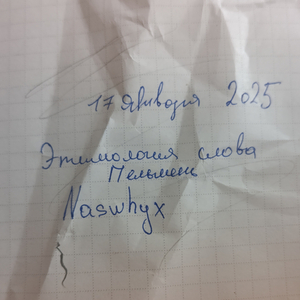 17 января 2025
Этимология слова
Пельмень
Naswhyx